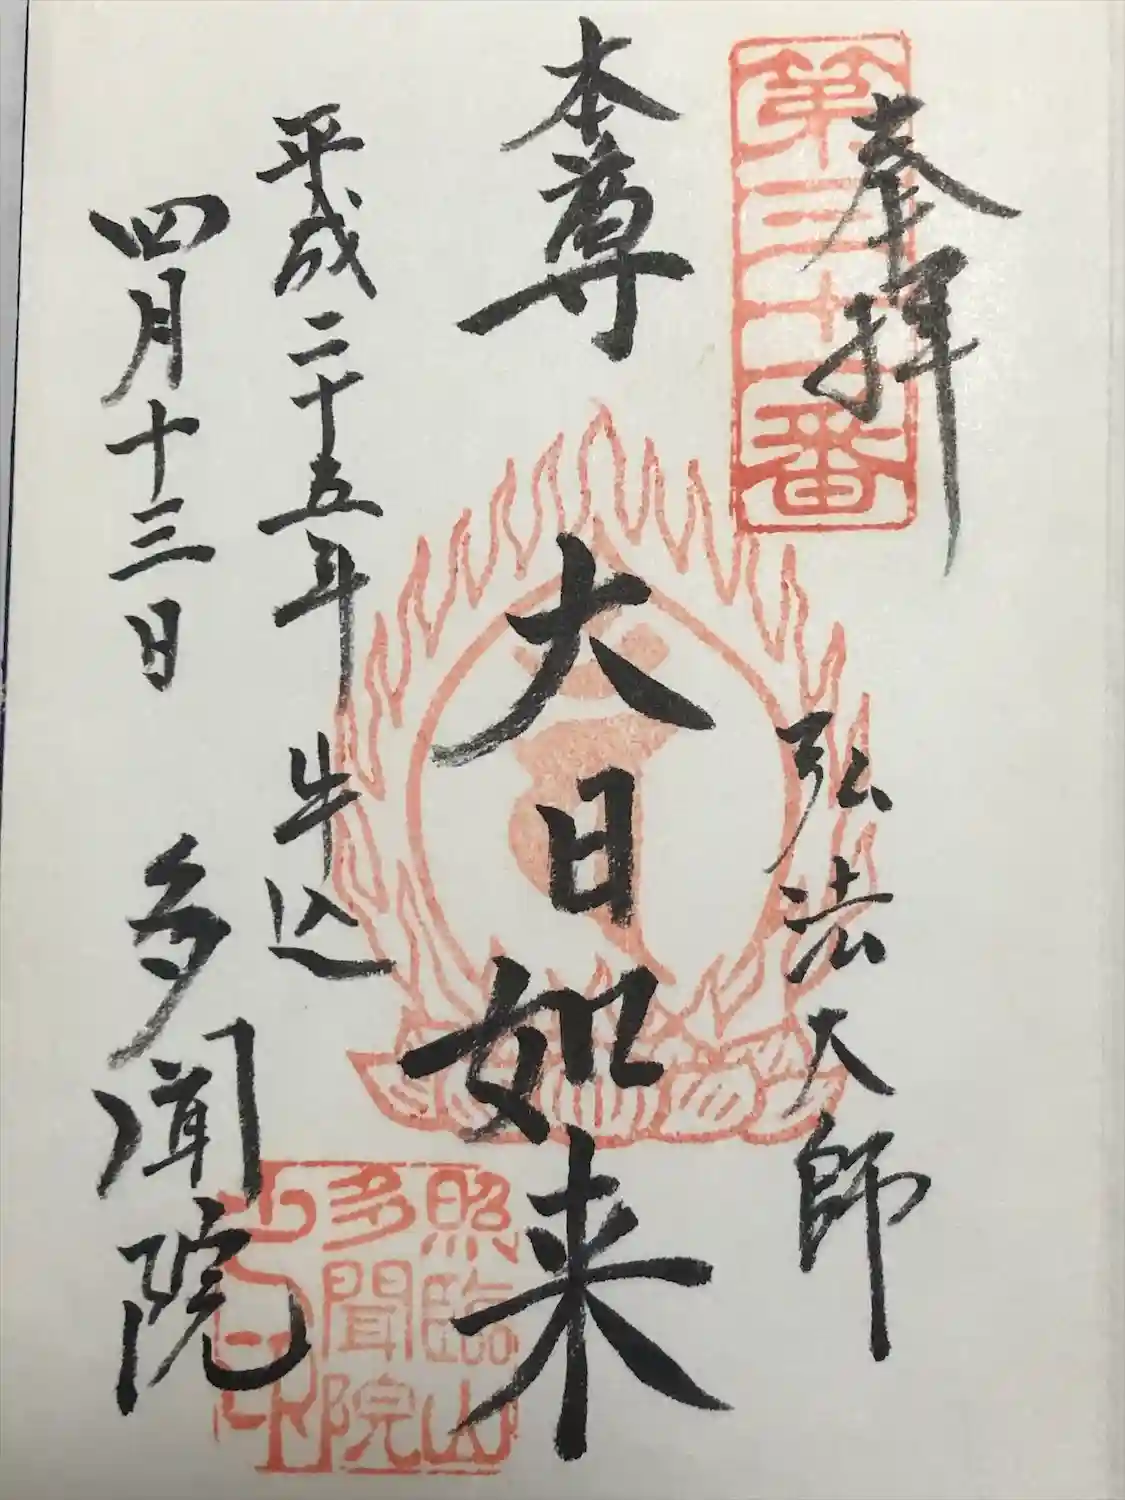 第三十一番
奉拝
弘法大師
本尊
大日如来
平成二十五年 牛込
四月十三日 多聞院
照臨山
多聞院
之印